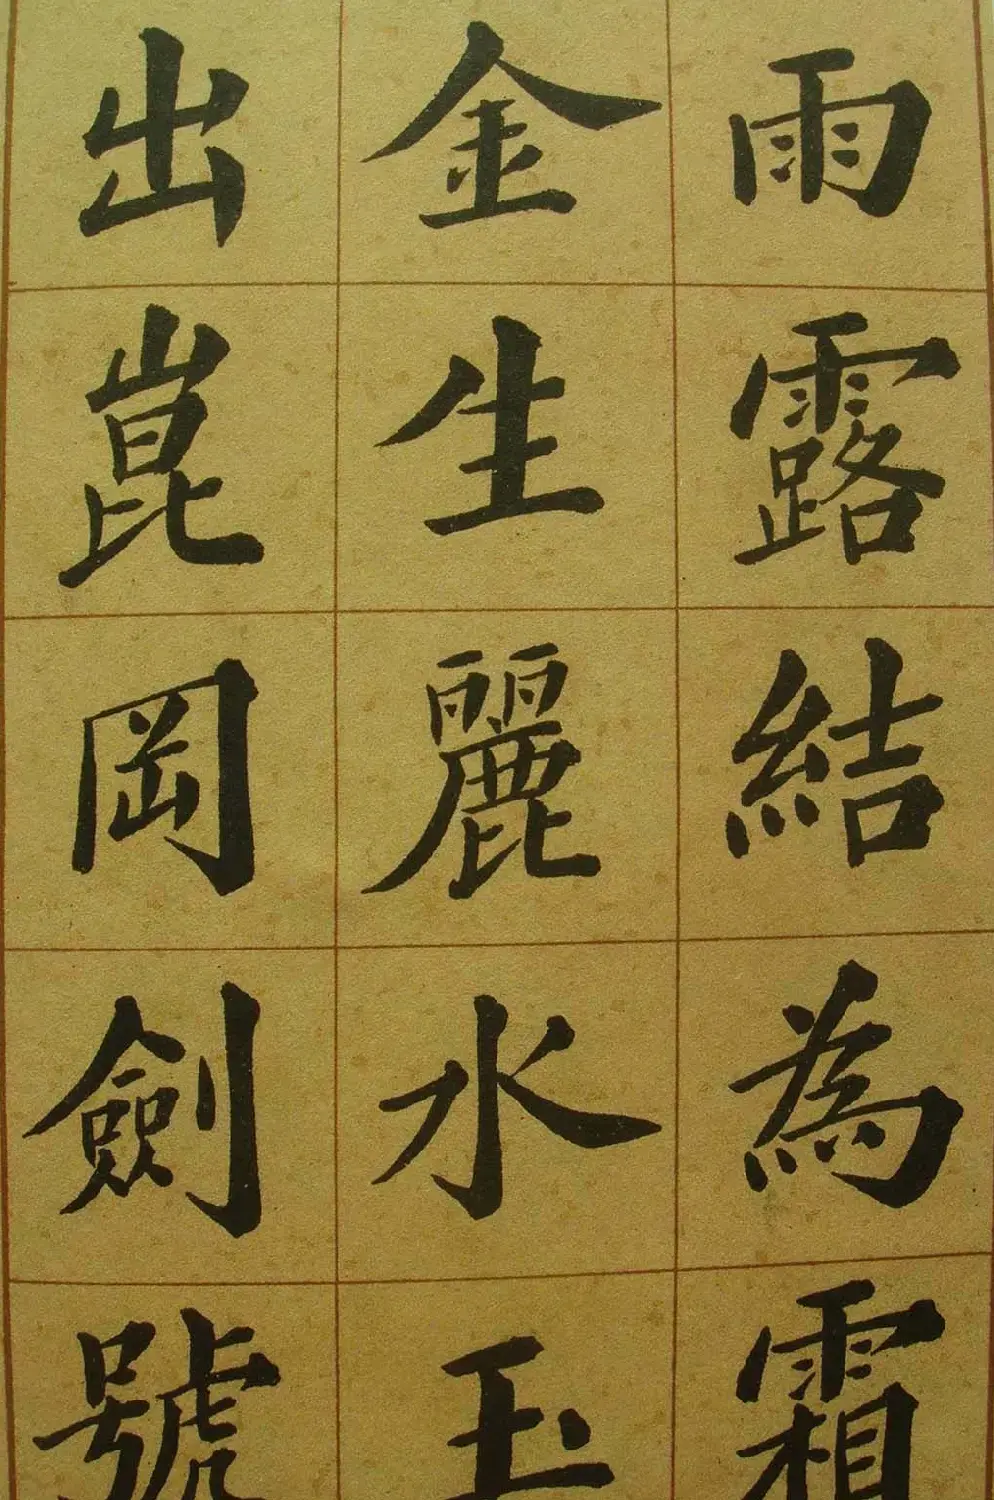 雨露結為霜
金生麗水玉
出崑岡劍號